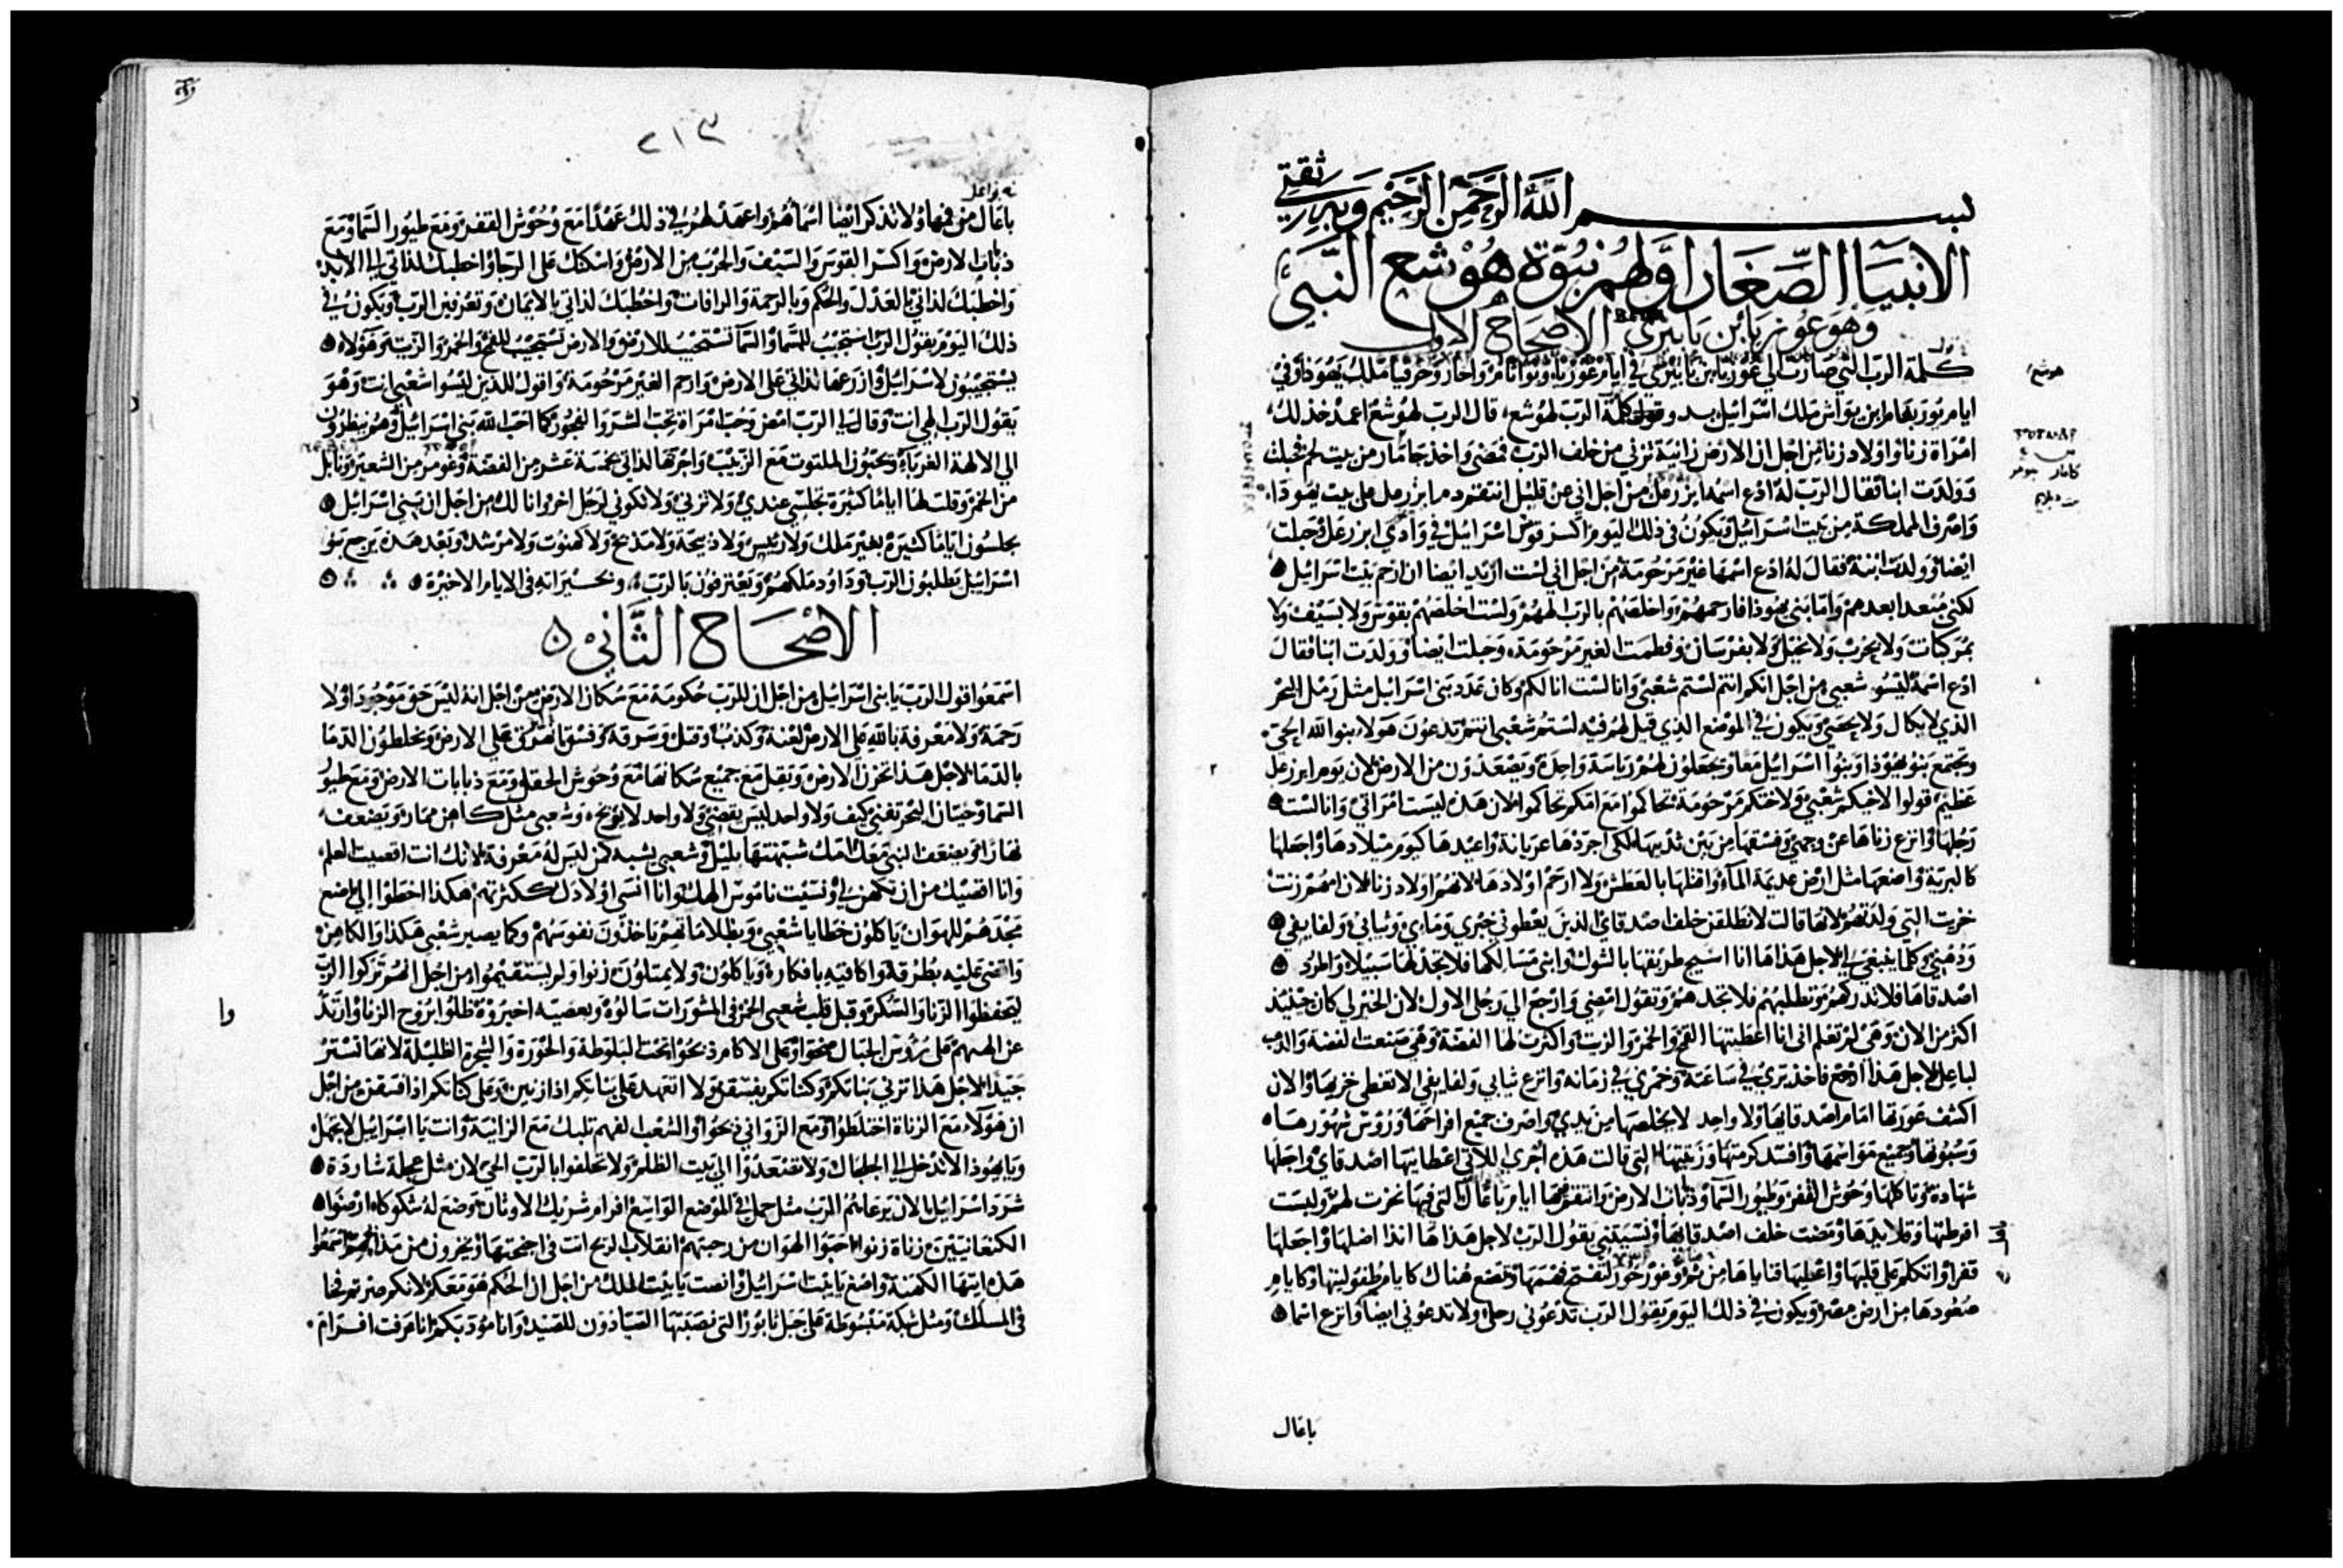 بسم الله الرحمن الرحيم وبه ثقتي
الانبيا الصغار اولهم نبوة هوشع النبي
وهو عوزيا ابن بايري الاصحاح الاول
كلمة الرب التي صارت الي عوزيا ابن بايري في ايام عوزيا ويواثام واحاز وحزقيا ملك يهوذا وفي
ايام يوربعام ابن يواش ملك اسرائيل بدو قول كلمة الرب لهوشع قال الرب لهوشع اعمد خذ لك
امراة زنا واولاد زنا من اجل ان الارض زانية تزني من خلف الرب فمضى واخذ جامار من بيت لم فحبلت
وولدت ابنا فقال الرب له ادع اسمه ايزرعل من اجل اني عن قليل انتقم دم ايزرعل على بيت يهوذا
واصرف المملكة من بيت اسرائيل ويكون في ذلك اليوم اكسر قوس اسرائيل في وادي ايزرعل وحبلت
ايضا وولدت ابنة فقال له ادع اسمها غير مرحومة من اجل اني لست ازيد ايضا ان ارحم بيت اسرائيل
لكني مبعدا ابعدهم واما بني يهوذا فارحمهم واخلصهم بالرب الههم ولست اخلصهم بقوس ولا بسيف ولا
بمركبات ولا بحرب ولا بخيل ولا بفرسان وفطمت الغير مرحومة وحبلت ايضا وولدت ابنا فقال
ادع اسمه ليسو شعبي من اجل انكم انتم لستم شعبي وانا لست انا لكم وكان عدد بني اسرائيل مثل رمل البحر
الذي لا يكال ولا يحصى ويكون في الموضع الذي قيل لهم فيه لستم شعبي انتم تدعون هولاء بنو الله الحي
ويجتمع بنو يهوذا وبنوا اسرائيل معا ويجعلون لهم رياسة واحدة ويصعدون من الارض لان يوم ايزرعل
عظيم قولوا لاخيكم شعبي ولاختكم مرحومة تحاكموا مع امكم تحاكموا لان هذه ليست امراتي وانا لست
رجلها وانزع زناها عن وجهي وفسقها من بين ثدييها لكي اجردها عريانة واعيدها كيوم ميلادها واجعلها
كالبرية واضعها مثل ارض عديمة الماء واقتلها بالعطش ولا ارحم اولادها لانهم اولاد زنا لان امهم زنت
خزيت التي ولدتهم لانها قالت لانطلقن خلف اصدقاي الذين يعطوني خبزي وماي وثيابي ولفايفي
ودهني وكلما ينبغي لي لاجل هذا ها انا اسيج طريقها بالشوك وابني مسالكها فلا تجد لها سبيلا وتطرد
اصدقاها فلا تدركهم وتطلبهم فلا تجدهم وتقول امضي وارجع الي رجلي الاول لان الخير لي كان حينيذ
اكثر من الان وهي لم تعلم اني انا اعطيتها القمح والخمر والزيت واكثرت لها الفضة وهي صنعت الفضة والذهب
لباعل لاجل هذا ارجع فاخذ بري في ساعته وخمري في زمانه وانزع ثيابي ولفايفي لا تغطي خزيها والان
اكشف عورتها امام اصدقايها ولا واحد لا يخلصها من يدي واصرف جميع افراحها وروس شهورها
وسبوتها وجميع مواسمها وافسد كرمتها وزيتها التي قالت هذه اجري اللاتي اعطانيها اصدقاي واجعلها
شهادة وتاكلها وحوش القفر وطيور السما وذباب الارض وانتقم منها ايام باعال التي فيها نحرت لهم ولبست
اقرطتها وقلايدها ومضت خلف اصدقايها ونسيتني يقول الرب لاجل هذا ها انذا اضلها واجعلها
قفرا واتكلم على قلبها واعطيها قناياها من ثم وغور خور لتفتح فهمها وتضع هناك كايام طفوليتها وكايام
صعودها من ارض مصر ويكون في ذلك اليوم يقول الرب تدعوني رجلي ولا تدعوني ايضا وانزع اسما
باعال
هوشع
٢١٣
باعال من فيها ولا تذكر ايضا اسماهم واعهد لهم في ذلك عهدا مع وحوش القفر ومع طيور السما ومع
ذباب الارض واكسر القوس والسيف والحرب من الارض واسكنك على الرجا واخطبك لذاتي الي الابد
واخطبك لذاتي بالعدل والحكم وبالرحمة والرافات واخطبك لذاتي بالايمان وتعرفين الرب ويكون في
ذلك اليوم يقول الرب استجيب للسما والسما تستجيب للارض والارض تستجيب للقمح والخمر والزيت وهولاء
يستجيبون لاسرائيل وازرعها لذاتي على الارض وارحم الغير مرحومة واقول للذين ليسوا شعبي انت وهو
يقول الرب الهي انت وقال لي الرب امض وحب امراة تحب الشر والفجور كما احب الله بني اسرائيل وهم ينظرون
الي الالهة الغرباء ويحبون الملتوت مع الزبيب واجرتها لذاتي بخمسة عشر من الفضة وغومر من الشعير ونابل
من الخمر وقلت لها اياما كثيرة تجلسي عندي ولا تزني ولا تكوني لرجل اخر وانا لك من اجل ان بني اسرائيل
يجلسون اياما كثيرة بغير ملك ولا رييس ولا ذبيحة ولا مذبح ولا كهنوت ولا مرشد وبعد هذه يرجع بنو
اسرائيل يطلبون الرب وداوود ملكهم ويعترفون بالرب وبخيراته في الايام الاخيرة
الاصحاح الثاني
اسمعوا قول الرب يا بني اسرائيل من اجل ان للرب حكومة مع سكان الارض من اجل انه ليس حق موجودا ولا
رحمة ولا معرفة بالله على الارض لعنة وكذب وقتل وسرقة وفسق انهرق على الارض ويخلطون الدما
بالدما لاجل هذا تحزن الارض وتقل مع جميع سكانها مع وحوش الحقل ومع ذبابات الارض ومع طيور
السما وحيتان البحر تفني كيف ولا واحد ليس يقضي ولا واحد لا يوبخ وشعبي مثل كاهن ممارة ويضعف
نهارا ويضعف النبي معك امك شبهتها بليل وشعبي يشبه كمن ليس له معرفة لانك انت اقصيت العلم
وانا اقصيك من ان تكهن لي ونسيت ناموس الهك وانا انسى اولادك ككثرتهم هكذا اخطوا الي اضع
مجدهم للهوان ياكلون خطايا شعبي وبظلاماتهم ياخذون نفوسهم وكما يصير شعبي هكذا والكاهن
وانتقم عليه بطرقه واكافيه بافكاره وياكلون ولا يمتلون زنوا ولم يستقيموا من اجل انهم تركوا الرب
ليحفظوا الزنا والسكر وقبل قلب شعبي الخمر في المشورات سالوه وبعصيته اخبروه ظلوا بروح الزنا وارتد
عن الههم على روس الجبال ضحوا وعلى الاكام ذبحوا تحت البلوطة والحورة والشجرة الظليلة لانها تستر
جيدا لاجل هذا تزني بناتكم وكناتكم يفسقن ولا اتعهد على بناتكم اذا زنين وعلى كناتكم اذا فسقن من اجل
ان هولاء مع الزناة اختلطوا ومع الزواني ذبحوا والشعب الفهم تلبك مع الزانية وانت يا اسرائيل لا تجهل
ويا يهوذا لا تدخل الي الجلجال ولا تصعدوا الي بيت الظلم ولا تحلفوا بالرب الحي لان مثل عجلة شاردة
شرد اسرائيل الان يرعاهم الرب مثل حمل في الموضع الواسع افرام شريك الاوثان وضع له شكوكا ارضوا
الكنعانيين زناة زنوا احبوا الهوان من رحبتهم انقلاب الريح انت في اجنحتها ويخزون من مذابحهم اسمعوا
هذه ايتها الكهنة واصغ يا بيت اسرائيل وانصت يا بيت الملك من اجل ان الحكم هو معكم لانكم صرتم فخا
في المسلك ومثل شبكة مبسوطة على جبل ثابور التي نصبتها الصيادون للصيد وانا مودبكم انا عرفت افرام
وا